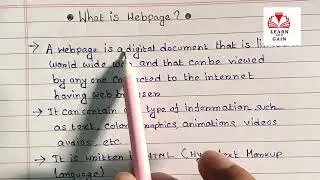 What is Webpage?
LEARN
GAIN
A webpage is a digital document that is
world wide and that can be viewed
by any one connected to the internet
having web browser
It can contain type of information such
as text, color, graphics, animations, videos
audios, etc.
It is written HTML (Hy Text Markup
Language)